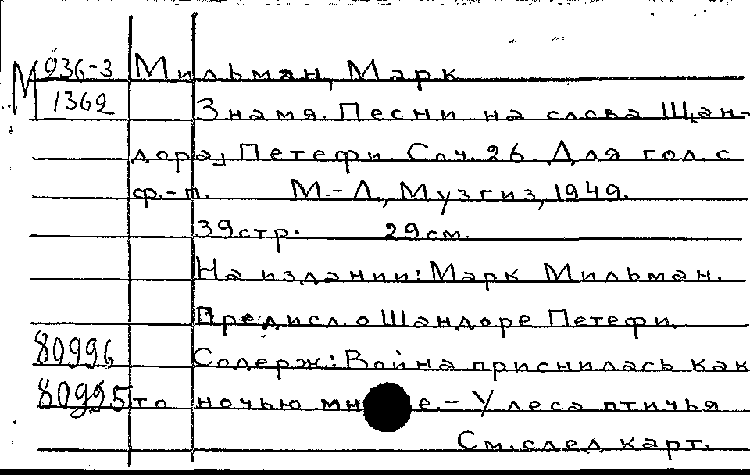 М 936-3 Мильман, Марк
1362 Знамя. Песни на слова Шан-
дора, Петефи Соч. 26. Для гол. с
ф.-п. М.-Л., Музгиз, 1949.
39 стр. 29 см.
На издании: Марк Мильман.
Предисл. о Шандоре Петефи.
80996 Содерж: Война приснилась как
80995 то ночью мн е. - У леса птичья
См. след карт.